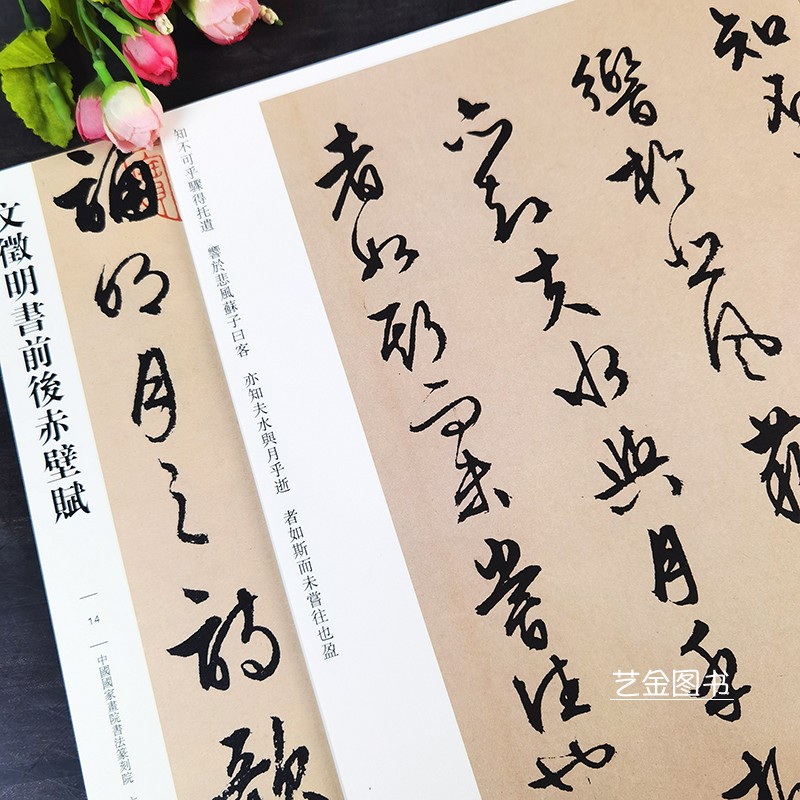 知
響於悲風蘇
亦知夫水與月乎
者如斯而未嘗往也
知不可乎驟得托遺 響於悲風蘇子曰客 亦知夫水與月乎逝 者如斯而未嘗往也盈
誦明月之詩歌
文徵明書前後赤壁賦
14
中國國家畫院書法篆刻院
艺金图书